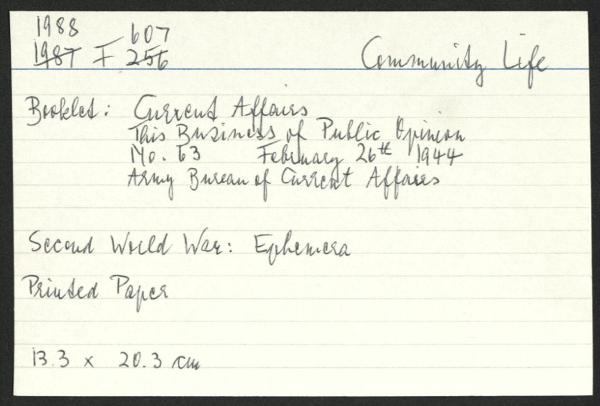 1988 607
1987 I 256
Community Life
Booklet: Current Affairs
This Business of Public Opinion
No. 63 February 26th 1944
Army Bureau of Current Affairs
Second World War: Ephemera
Printed Paper
13.3 x 20.3 cm